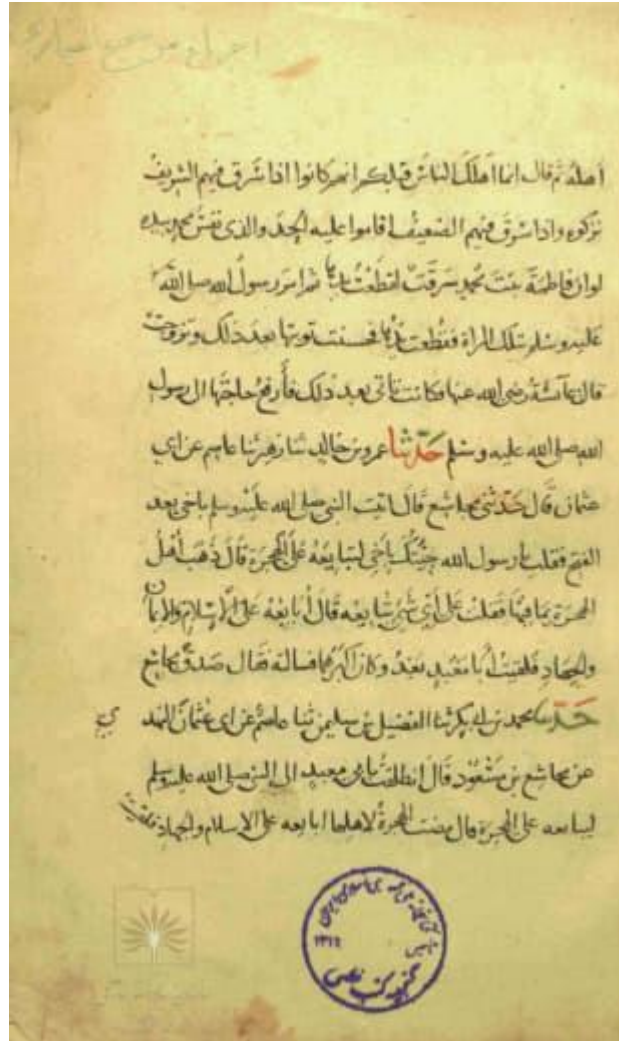 اجزاء من صحيح البخاري
اهله ثم قال انما اهلك الناس قبلكم انهم كانوا اذا سرق فيهم الشريف
تركوه واذا سرق فيهم الضعيف اقاموا عليه الحد والذي نفس محمد بيده
لو ان فاطمة بنت محمد سرقت لقطعت يدها ثم امر رسول الله صلى الله
عليه وسلم بتلك المراة فقطعت يدها فحسنت توبتها بعد ذلك وتزوجت
قال عائشة رضى الله عنها فكانت تاتى بعد ذلك فأرفع حاجتها الى رسول
الله صلى الله عليه وسلم حدثنا عمرو بن خالد ثنا زهير ثنا عاصم عن ابي
عثمان قال حدثنى مجاشع قال اتيت النبى صلى الله عليه وسلم باخى بعد
الفتح فقلت يا رسول الله جئتك باخى لتبايعه على الهجرة قال ذهب اهل
الهجرة بما فيها فقلت على اي شئ تبايعه قال أبايعه على الاسلام والايمان
والجهاد فلقيت أبا معبد بعد وكان اكبرهما فسالته فقال صدق مجاشع
حدثنا محمد بن ابى بكر ثنا الفضيل بن سليمن ثنا عاصم عن ابى عثمان النهد
ي
عن مجاشع بن مسعود قال انطلقت بابى معبد الى النبى صلى الله عليه وسلم
ليبايعه على الهجرة قال مضت الهجرة لاهلها ابايعه على الاسلام والجهاد فلقيت
۱۳۱۶
گنجینه کتب خطی